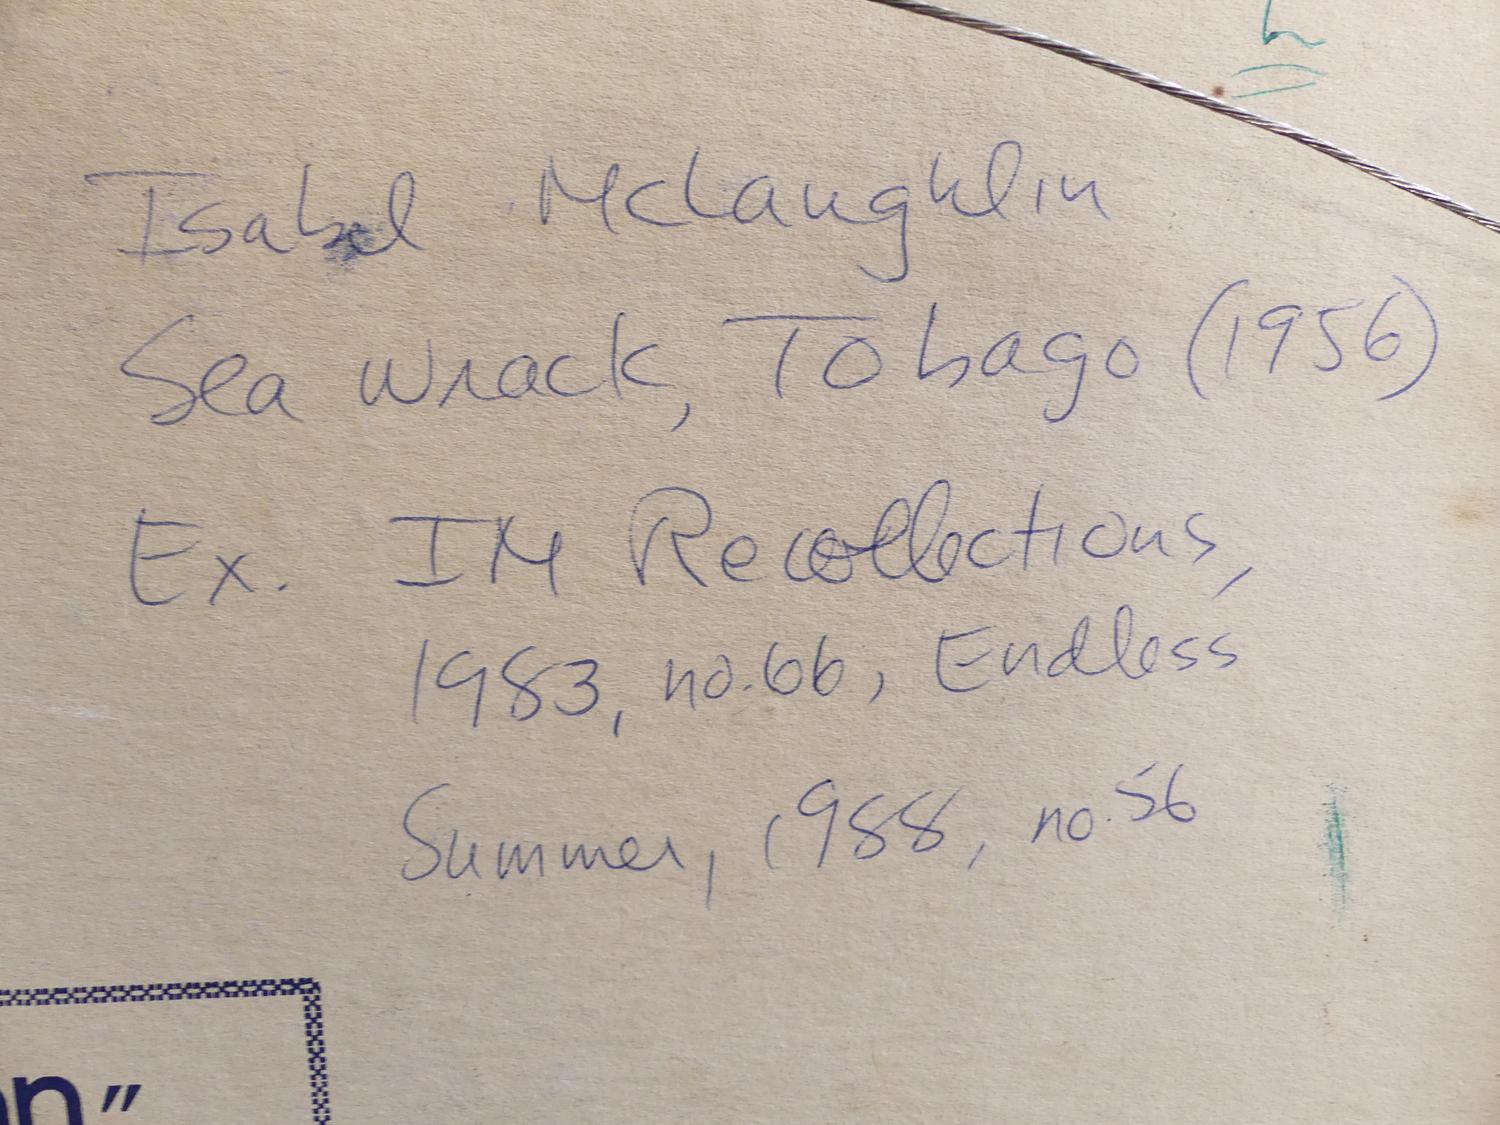 Isabel McLaughlin
Sea Wrack, Tobago (1956)
Ex. IM Recollections,
1983, no.66, Endless
Summer, 1988, no.56
on"